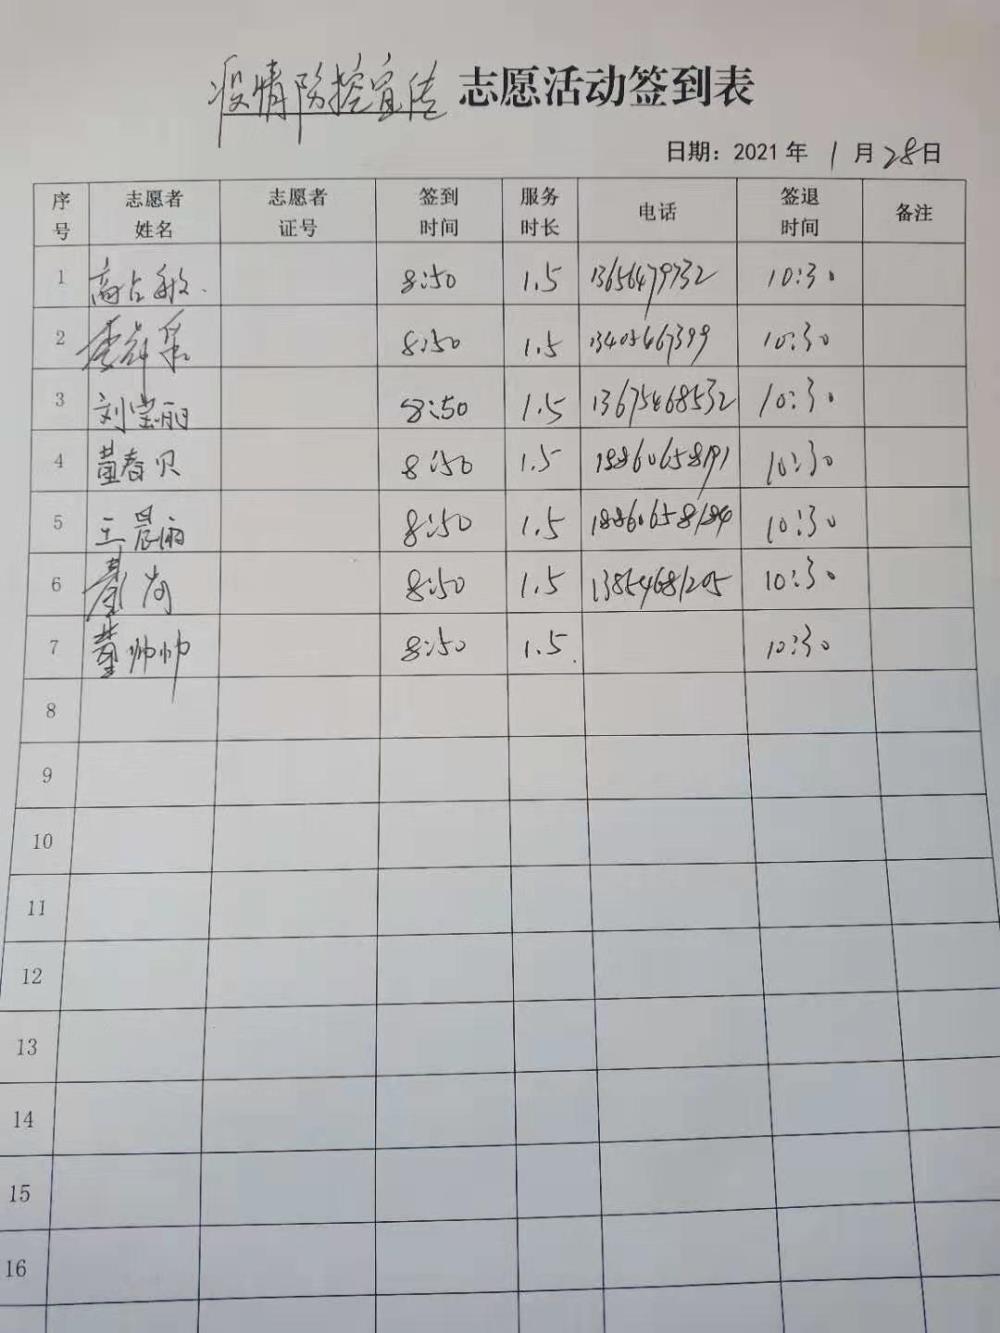 疫情防控宣传 志愿活动签到表
日期：2021年 1月28日
序号 志愿者姓名 志愿者证号 签到时间 服务时长 电话 签退时间 备注
1 高占敏 8:50 1.5 13656479732 10:30
2 8:50 1.5 13405467399 10:30
3 刘宝丽 8:50 1.5 13675468532 10:30
4 黄春贝 8:50 1.5 18860658191 10:30
5 王晨雨 8:50 1.5 18860658184 10:30
6 8:50 1.5 13854681205 10:30
7 董帅帅 8:50 1.5 10:30
8
9
10
11
12
13
14
15
16